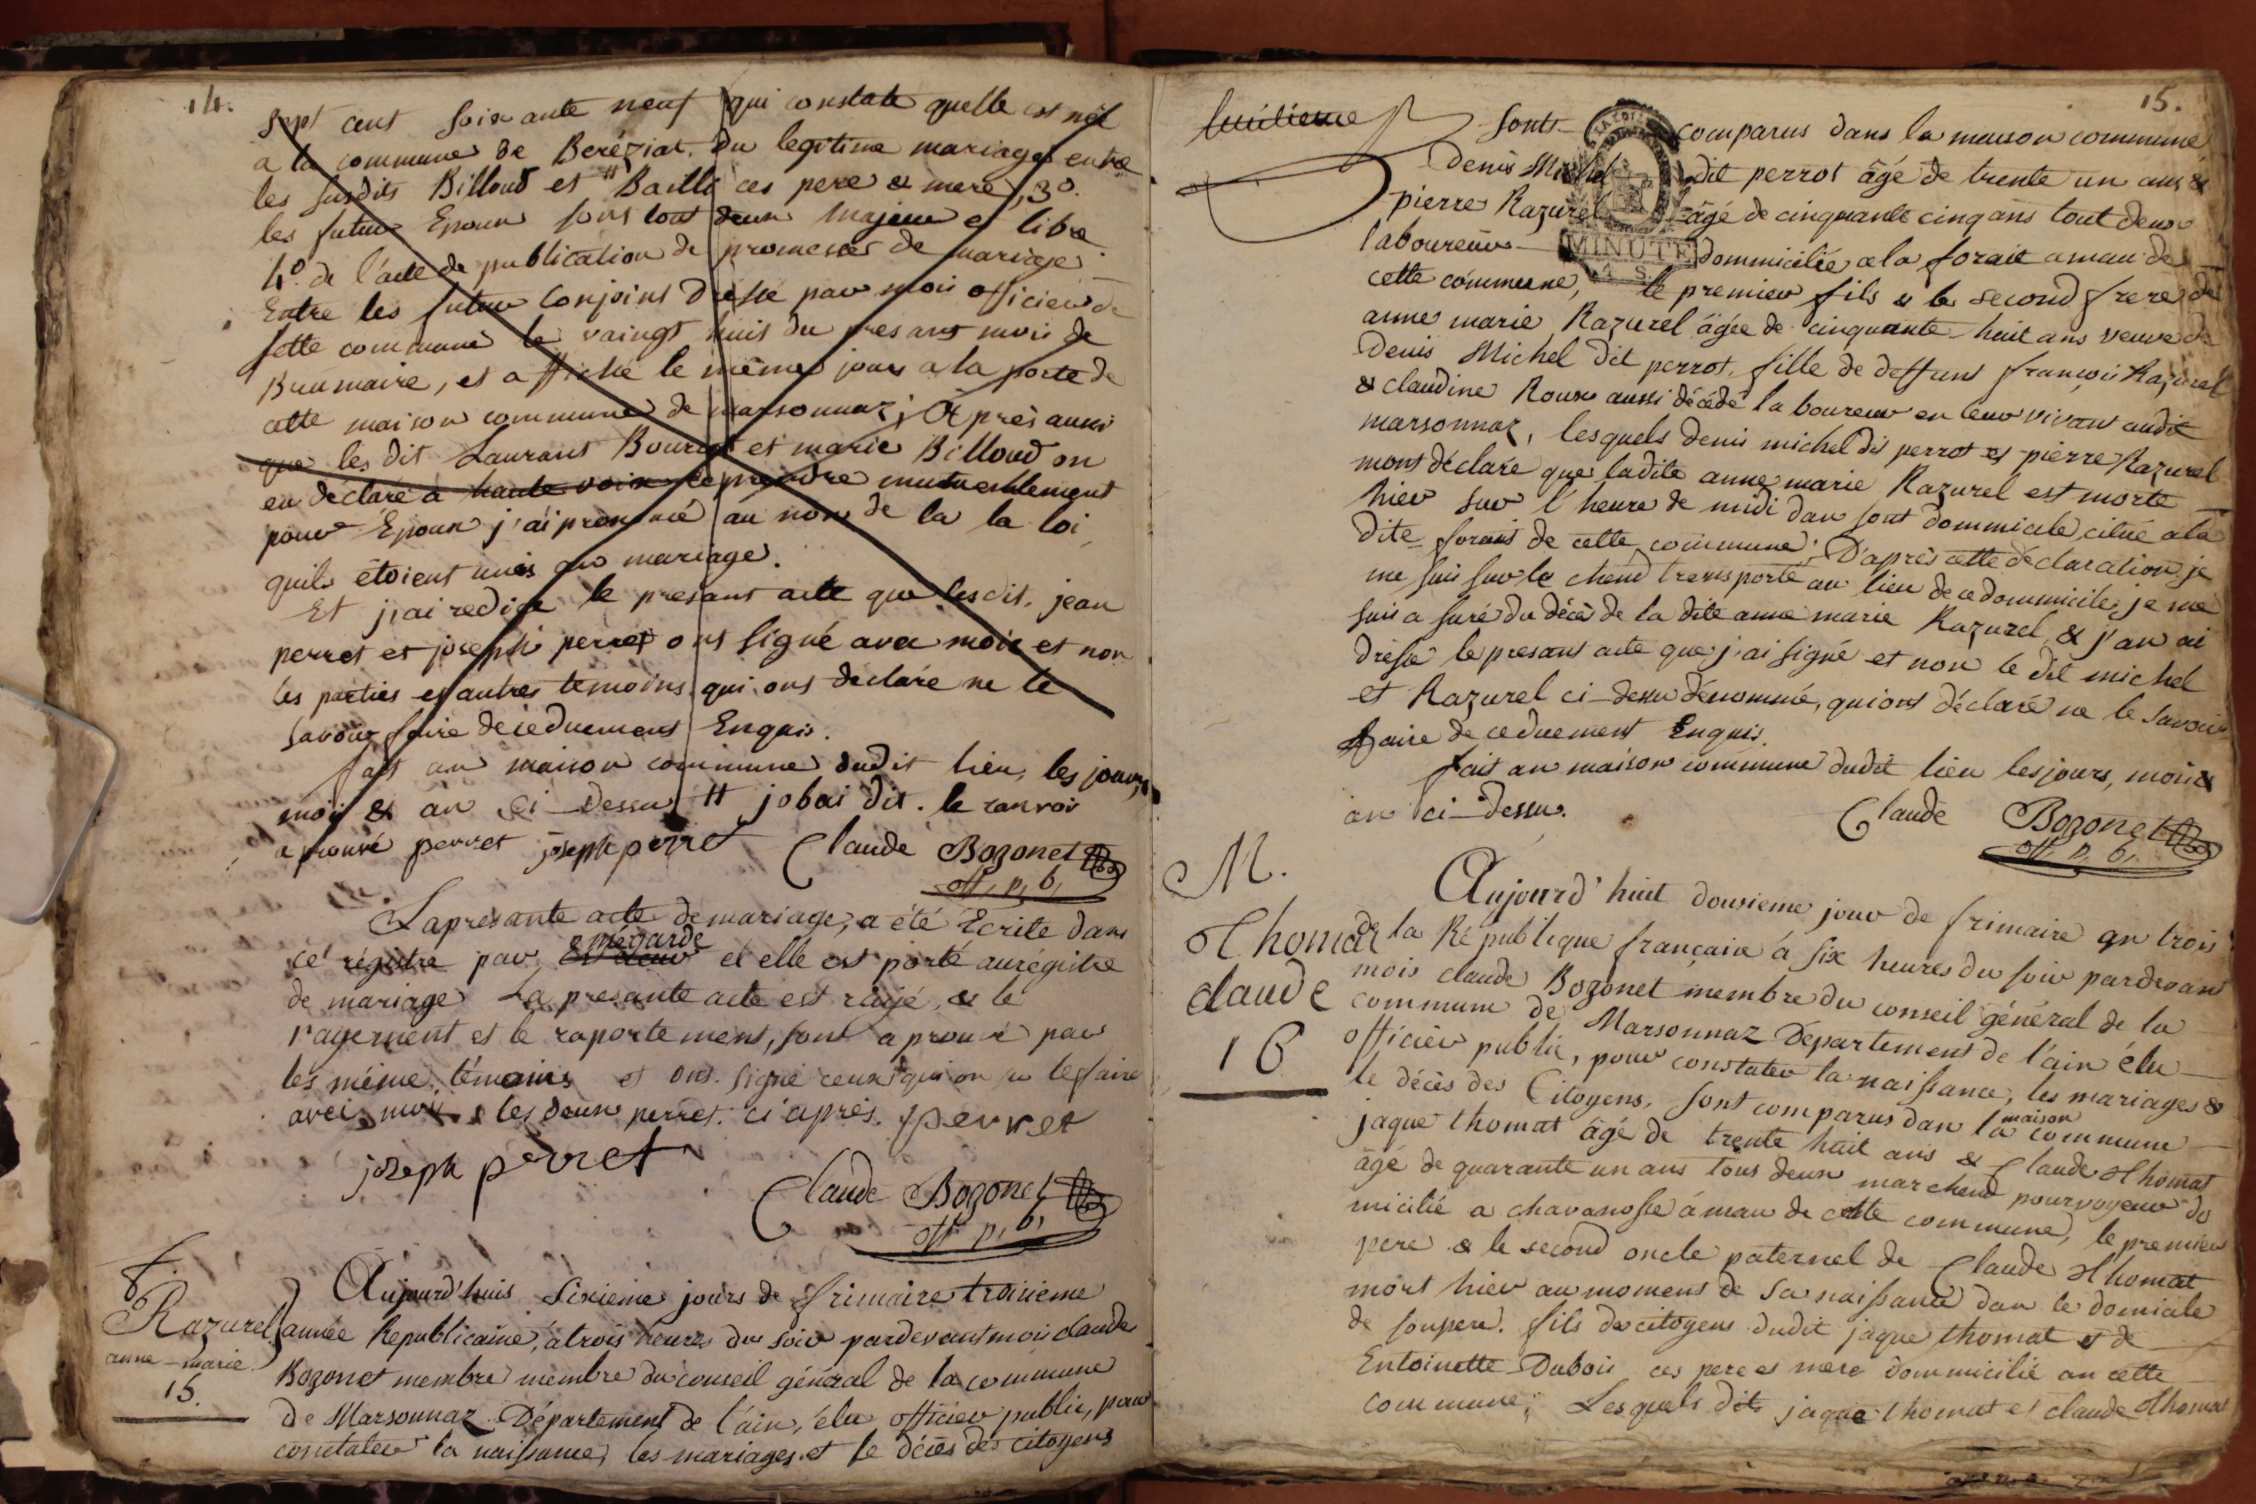 14.
sept cent soixante neuf qui constate quelle est née
a la commune de Beréziat. du legitime mariage entre
les susdits Billoud et Bailli ces pere & mere, 3º.
les futur Epoux sont tout deux majeur et libre
4º. de l'acte de publication de promesses de mariage
Entre les futur Conjoins dressé par mois officier de
sette commune le vaingt huis du presant mois de
Brumaire, et affiché le même jours a la porte de
cette maison commune de marsonnaz; Après aussi
que les dit Laurant et marie Billoud on
en déclaré a haute voix se prendre mutuenlement
pour Epoux j'ai prononcé au nom de la la loi
quils étoient unis en mariage.
Et j'ai redigé le presant acte que lesdit. jean
perret et joseph perret ont signé avec moi et non
les parties et autres temoins qui ont declaré ne le
savoir faire de ceduement Enquis.
fait an maison commune dudit lieu, les jours,
moi & an ci-dessu # jobai dit. le ranvoi
aprouvé perret joseph perret Claude Bozonet
off. p. b.
Lapresante acte de mariage, a été Ecrite dans
ce régitre par mégarde et elle est porté aurégitre
de mariage La presante acte est raïyé, & le
rayement et le raportement, sont aprouvé par
les même témoins et ont signé ceux qui on su le faire
avec moi, les deux perret. ci après. perret
joseph perret
Claude Bozonet
off. p. b.
Razurel
anne-marie
15.
Aujourd'huis sixieme jours de frimaire troisieme
année Republicaine, atrois heures du soir pardevant moi claude
Bozonet membre membre du conseil général de la commune
de Marsonnaz Département de l'ain, élu officier public, pour
constater la naissance, les mariages et le décès des citoyens
15.
sonts comparus dans la maison commune
denis Michel dit perrot âgé de trente un ans &
pierre Razurel âgé de cinquante cinq ans tout deux
laboureur dommicilié a la forait aman de
cette commune, le premier fils & le second frere de
anne marie Razurel âgée de cinquante-huit ans veuve de
Denis Michel dit perrot, fille de deffunt françois Razurel
& claudine Roux aussi décédé laboureur en leur vivant audit
marsonnaz, lesquels denis michel dit perrot et pierre Razurel
mont déclaré que ladite anne marie Razurel est morte
hier sur l'heure de midi dan sont dommicile, citué a la
dite forait de cette commune; D'après cette déclaration, je
me suis sur le chend transporté au lieu de ce dommicile, je me
suis asuré du décès de la dite anne marie Razurel, & j'an ai
dressé le presant acte que j'ai signé et non le dit michel
et Razurel ci-dessu dénommé, qui ont déclaré ne le savoir
faire de ceduement Enquis.
fait an maison commune dudit lieu les jours, moi &
an ci-dessu.
Claude Bozonet
off. p. b.
M.
Thomat
claude
16
Aujourd'huit dousieme jour de frimaire an trois
de la Republique françaix à six heures du soir pardevant
mois claude Bozonet membre du conseil général de la
commune de Marsonnaz Département de l'ain élu
officier public, pour constater la naissance, les mariages &
le décès des Citoyens, sont comparus dan la maison commune
jaque thomat âgé de trente huit ans & Claude Thomat
âgé de quarante un ans tous deux marchend pourvoyeur do
micilié a chavanosse aman de cette commune, le premier
pere & le second oncle paternel de Claude Thomat
mort hier au moment de sa naissance dan le domicile
de soupere. fils de citoyens dudit jaque thomat et de
Entoinette Dubois ces pere et mere dommicilié an cette
commune; Lesquels dits jaque thomat et claude Thomat